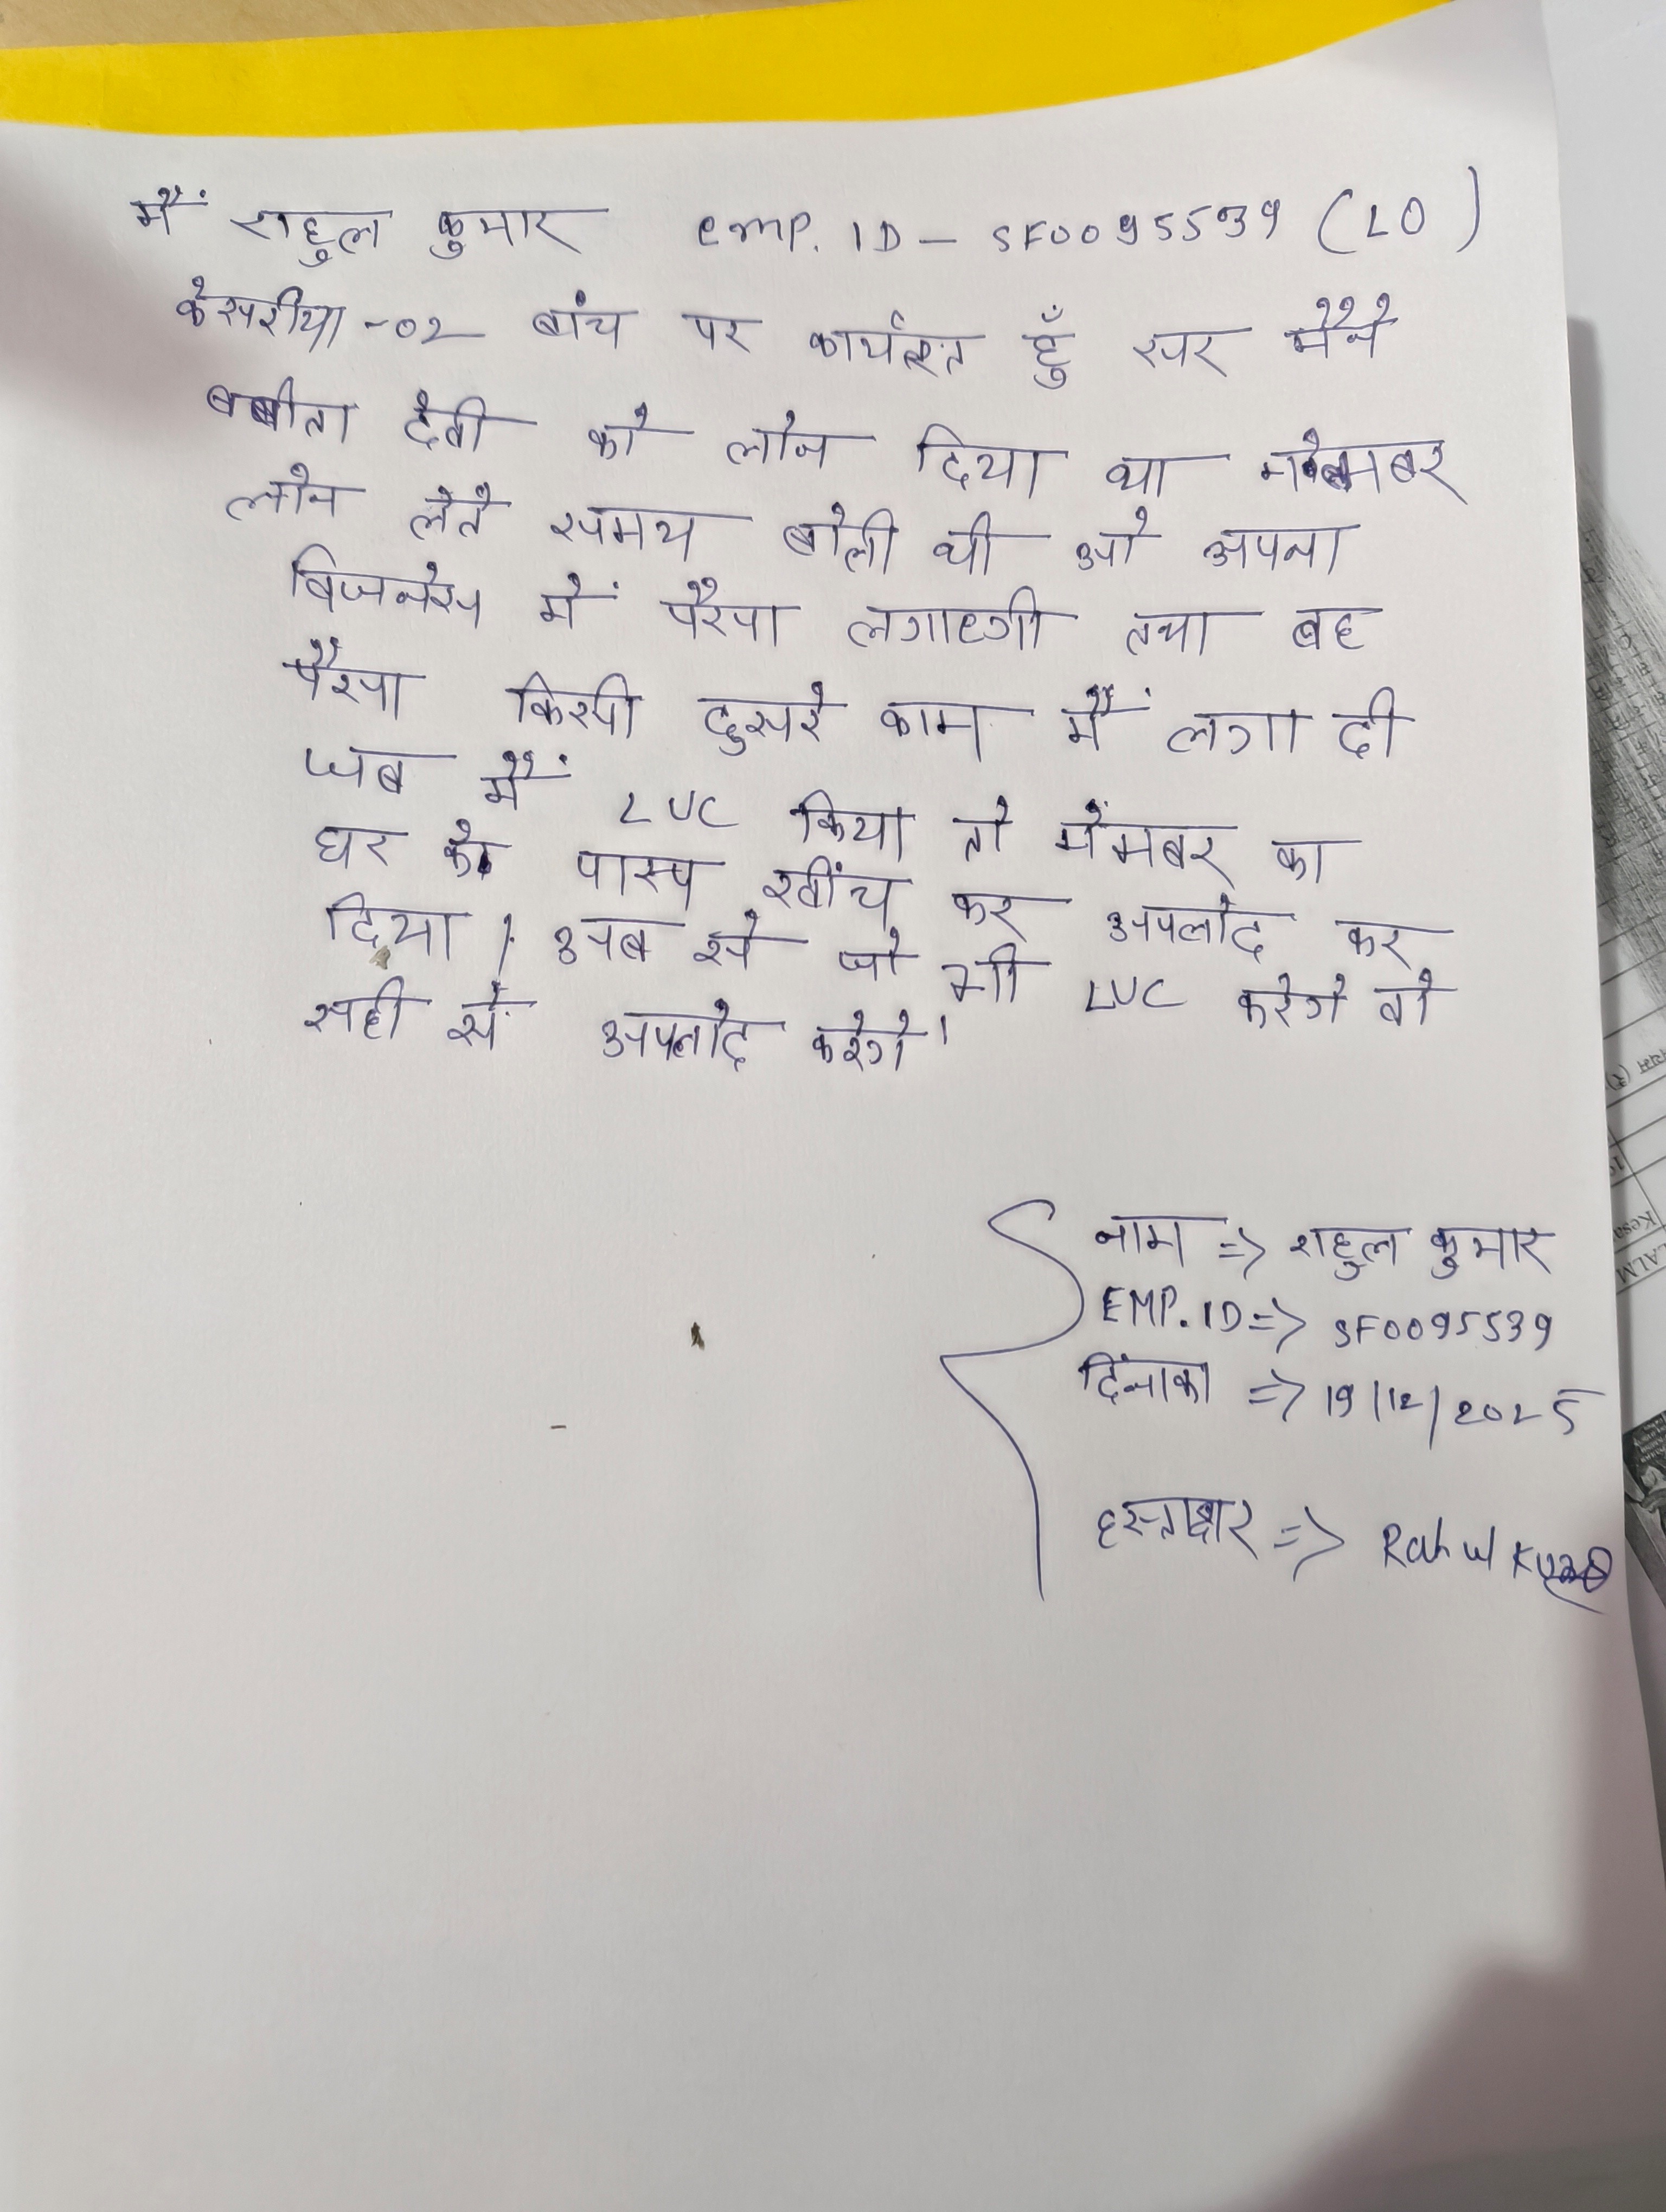 मैं राहुल कुमार emp. ID - SF0095539 (LO)
केसरीया -02 बांच पर कार्यरत हुँ सर मैने
बबीता देवी को लोन दिया था मेमबर
लोन लेते समय बोली थी ओ अपना
बिजनेस में पैसा लगाएगी तथा बह
पैसा किसी दुसरे काम मैं लगा दी
जब मैं LUC किया तो मेंमबर का
घर के पास खींच कर अपलोद कर
दिया । अब से जो भी LUC करेगे वो
सही से अपलोद करेगे।
नाम => राहुल कुमार
EMP. ID => SF0095539
दिंनाका => 19/12/2025
हस्ताक्षर => Rahul